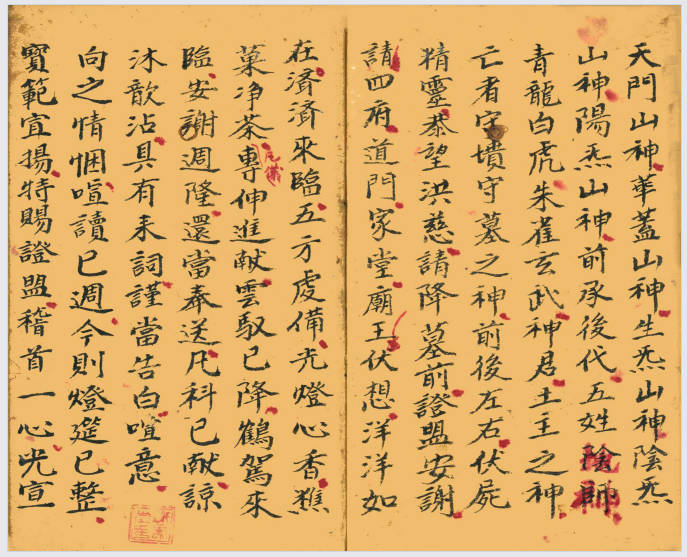 天門山神華蓋山神生炁山神陰炁
山神陽炁山神前承後代五姓陰師
青龍白虎朱雀玄武神君土主之神
亡者守墳守墓之神前後左右伏屍
精靈恭望洪慈請降墓前證盟安謝
請四府道門家堂廟王伏想洋洋如
在濟濟來臨五方虔備光燈心香
菓净茶專伸進献雲馭已降鶴駕來
臨安謝週隆還當奉送凡科已献諒
沐歆沾具有耒詞謹當告白喧意
向之情悃喧讀已週今則燈筵已整
寶範宜揚特賜證盟稽首一心光宣